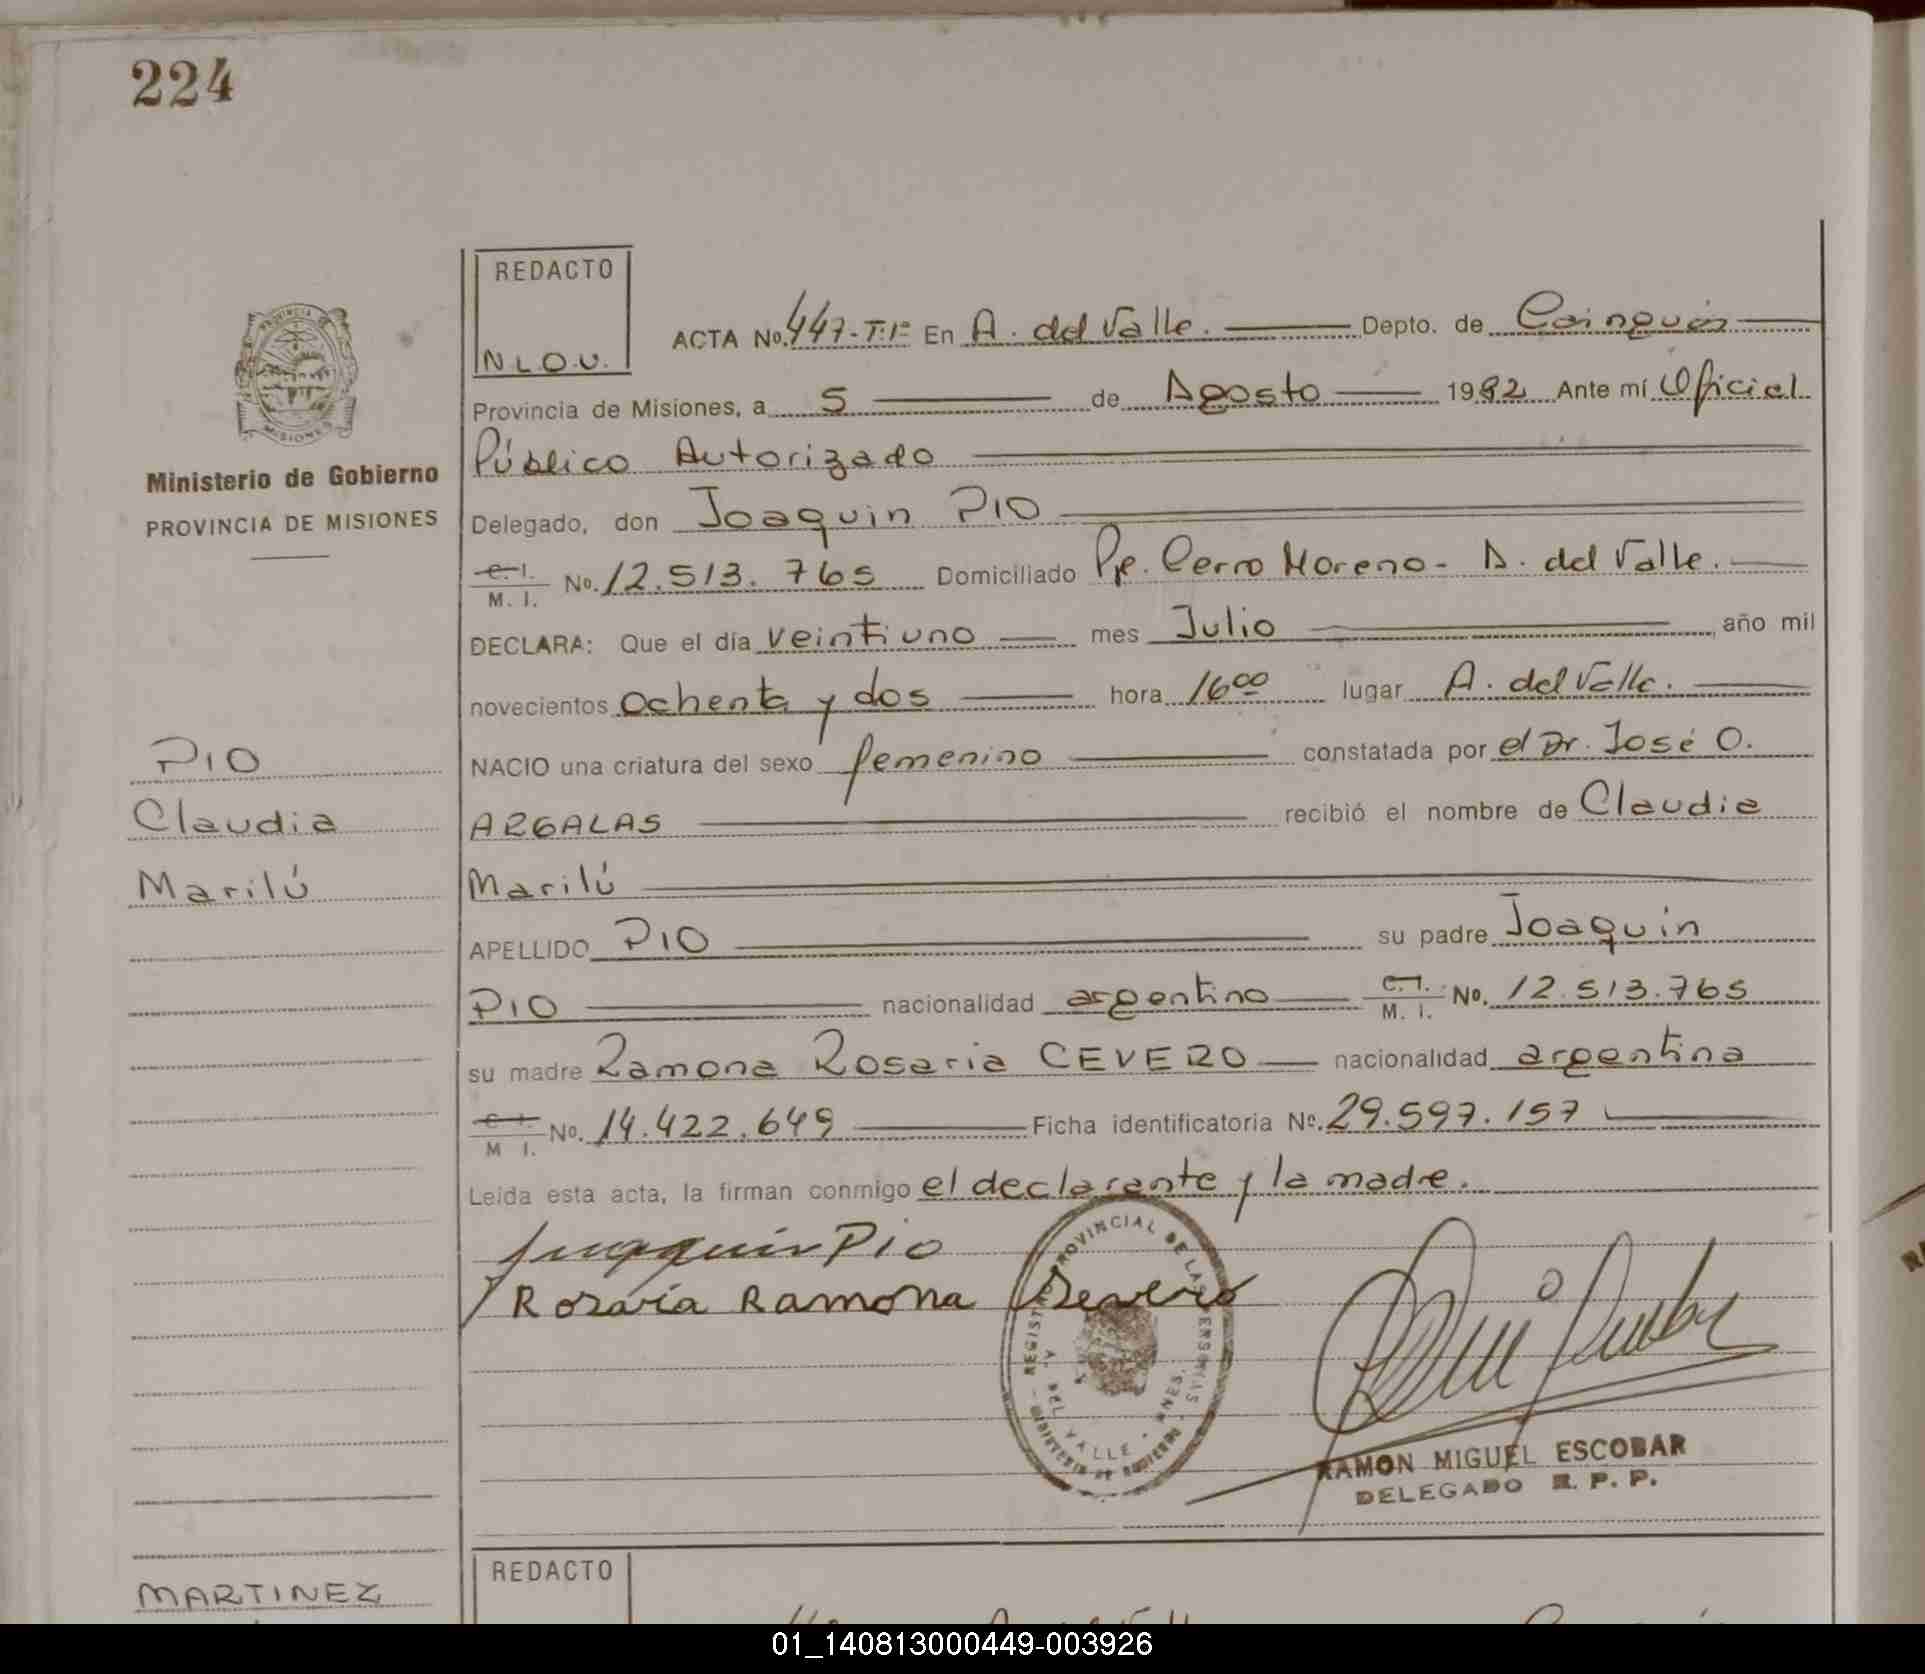 224
REDACTO
N.L.O.U.
PROVINCIA DE
MISIONES
Ministerio de Gobierno
PROVINCIA DE MISIONES
ACTA No. 447-T:1º En A. del Valle. Depto. de Cainguás
Provincia de Misiones, a 5 de Agosto 1982 Ante mí Oficial
Público Autorizado
Delegado, don Joaquin PIO
C. I. M. I. No. 12.513.765 Domiciliado Pje. Cerro Moreno - A. del Valle.
DECLARA: Que el día veintiuno mes Julio año mil
novecientos ochenta y dos hora 16 00 lugar A. del Valle.
NACIO una criatura del sexo femenino constatada por el Dr. José O.
ARGALAS recibió el nombre de Claudia
Marilú
APELLIDO PIO su padre Joaquin
PIO nacionalidad argentino C. I. M. I. No. 12.513.765
su madre Ramona Rosaria CEVERO nacionalidad argentina
C. I. M. I. No. 14.422.649 Ficha identificatoria Nº. 29.597.157
Leída esta acta, la firman conmigo el declarante y la madre.
PIO
Claudia
Marilú
Pio
Rosaria Ramona Severo
REGISTRO PROVINCIAL DE LAS PERSONAS
A. DEL VALLE - MNES.
MINISTERIO DE GOBIERNO
RAMON MIGUEL ESCOBAR
DELEGADO R. P. P.
REDACTO
MARTINEZ
01_140813000449-003926